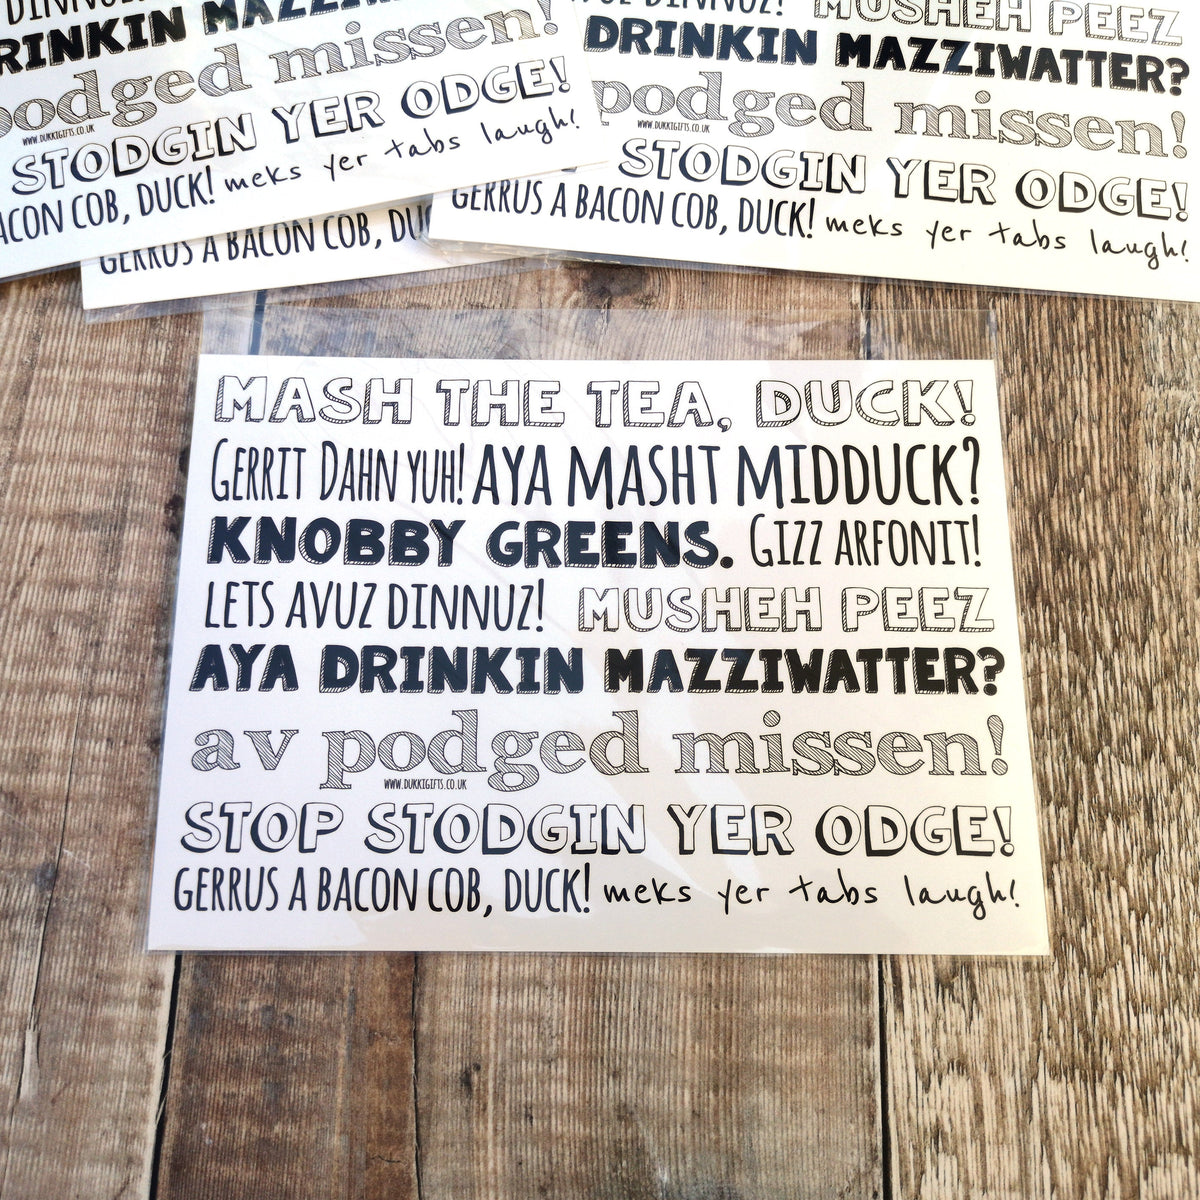 DINNUZ!
DRINKIN MAZZIWATTER?
podged missen!
WWW.DUKKIGIFTS.CO.UK
STODGIN YER ODGE!
BACON COB, DUCK! meks yer tabs laugh!
GERRUS A BACON COB, DUCK!
DINNUZ! MUSHEH PEEZ
DRINKIN MAZZIWATTER?
podged missen!
WWW.DUKKIGIFTS.CO.UK
STODGIN YER ODGE!
GERRUS A BACON COB, DUCK! meks yer tabs laugh!
MASH THE TEA, DUCK!
GERRIT DAHN YUH! AYA MASHT MIDDUCK?
KNOBBY GREENS. GIZZ ARFONIT!
LETS AVUZ DINNUZ! MUSHEH PEEZ
AYA DRINKIN MAZZIWATTER?
av podged missen!
WWW.DUKKIGIFTS.CO.UK
STOP STODGIN YER ODGE!
GERRUS A BACON COB, DUCK! meks yer tabs laugh!